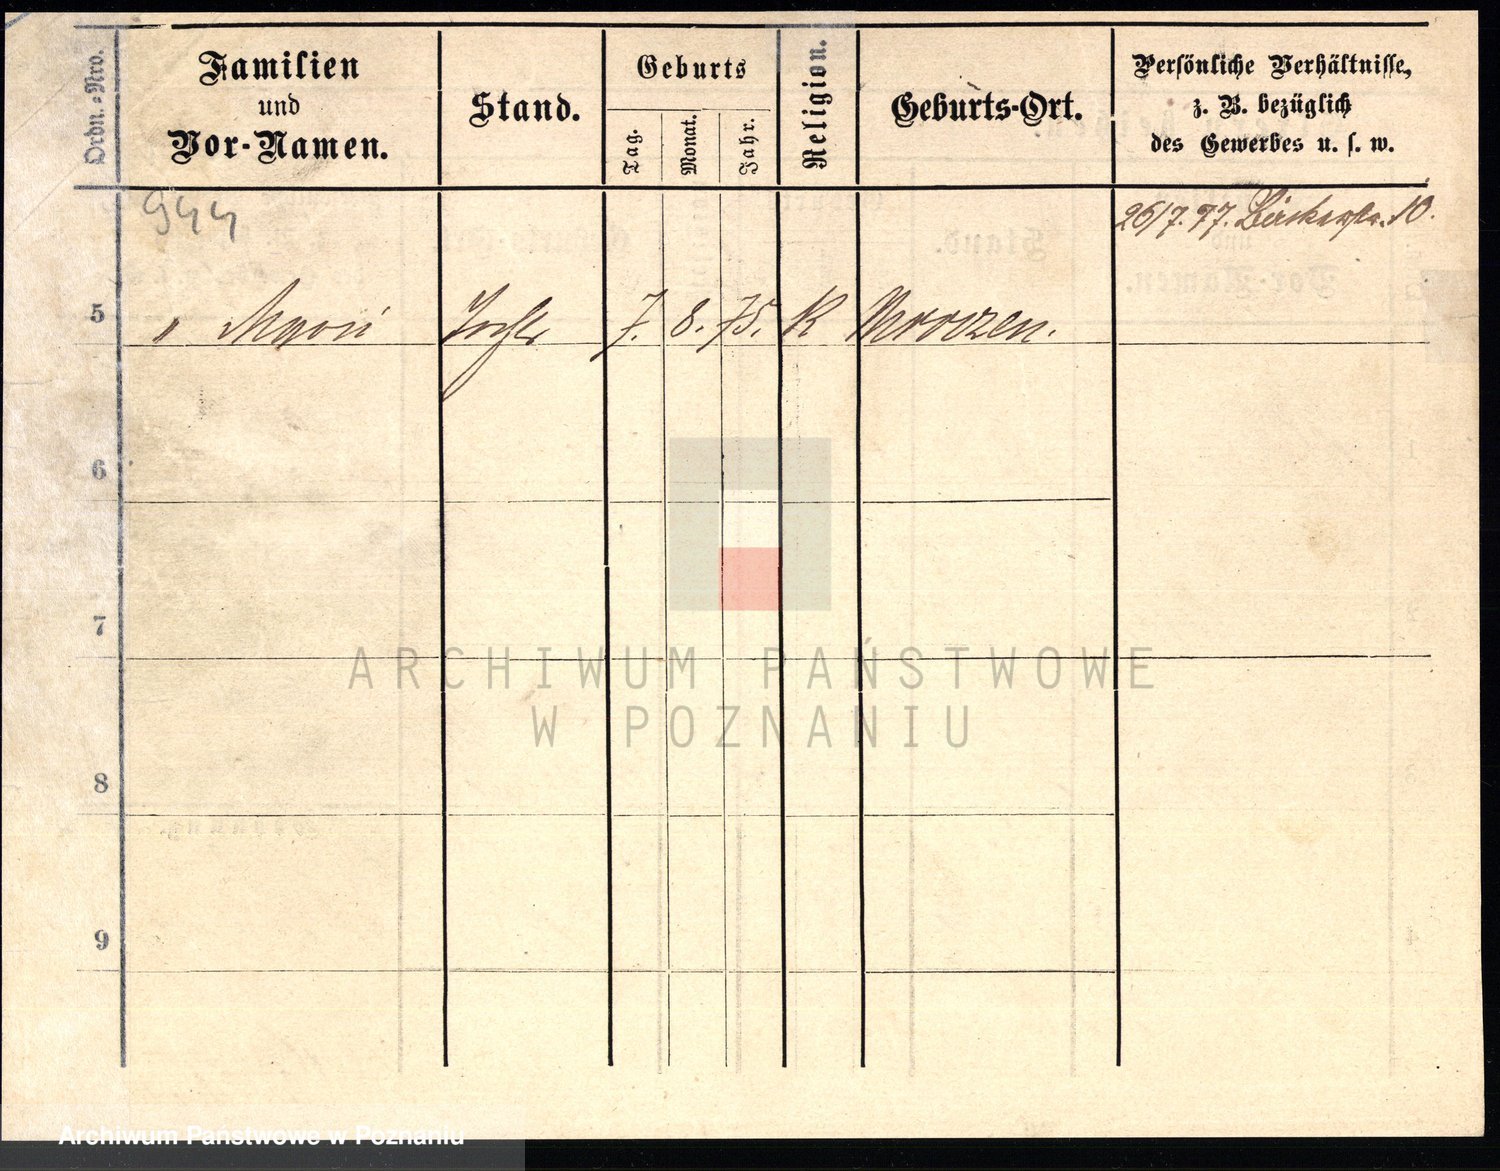 Ordn.-Nro.
Familien
und
Vor-Namen.
Stand.
Geburts
Tag.
Monat.
Jahr.
Religion.
Geburts-Ort.
Persönliche Verhältnisse,
z. B. bezüglich
des Gewerbes u. s. w.
944
26/7.97. 10.
5 " 7. 8. 75. K
6
7
8
9
ARCHIWUM PAŃSTWOWE
W POZNANIU
Archiwum Państwowe w Poznaniu